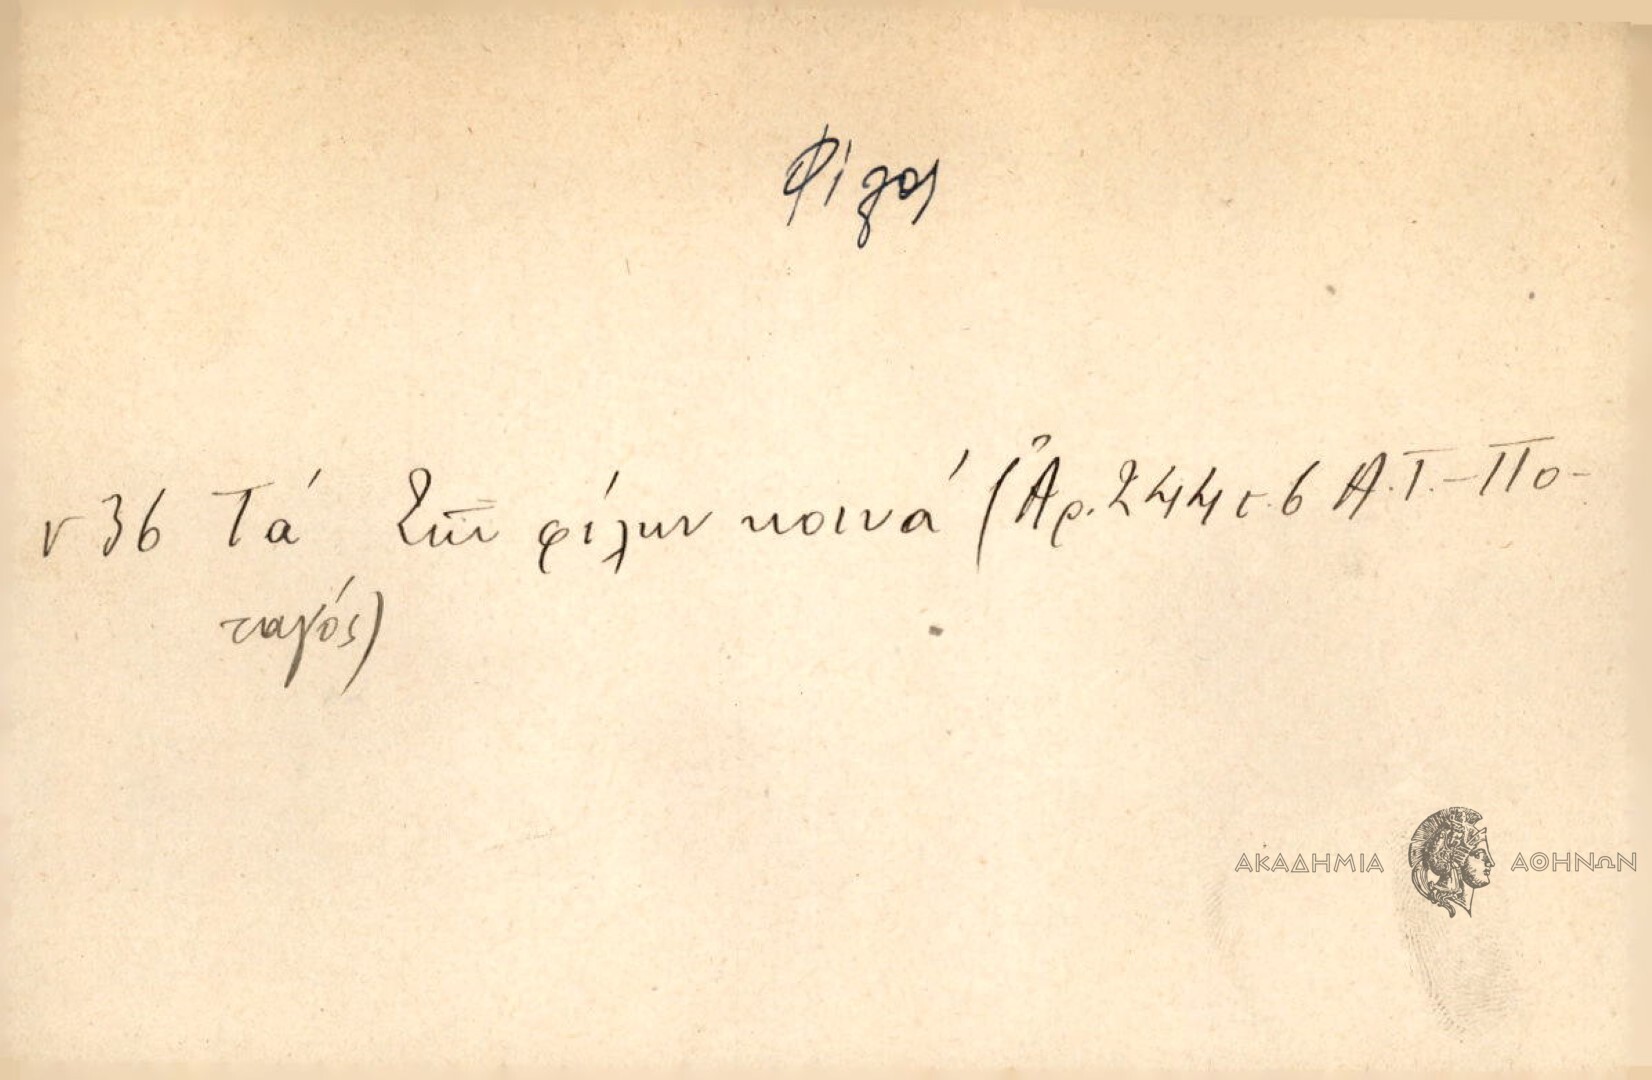 Φίλος
ν 36 Τά τῶν φίλων κοινά (Ἀρ. 244 σ. 6 Α.Τ.-Πο-
ταγός)
ΑΚΑΔΗΜΙΑ ΑΘΗΝΩΝ